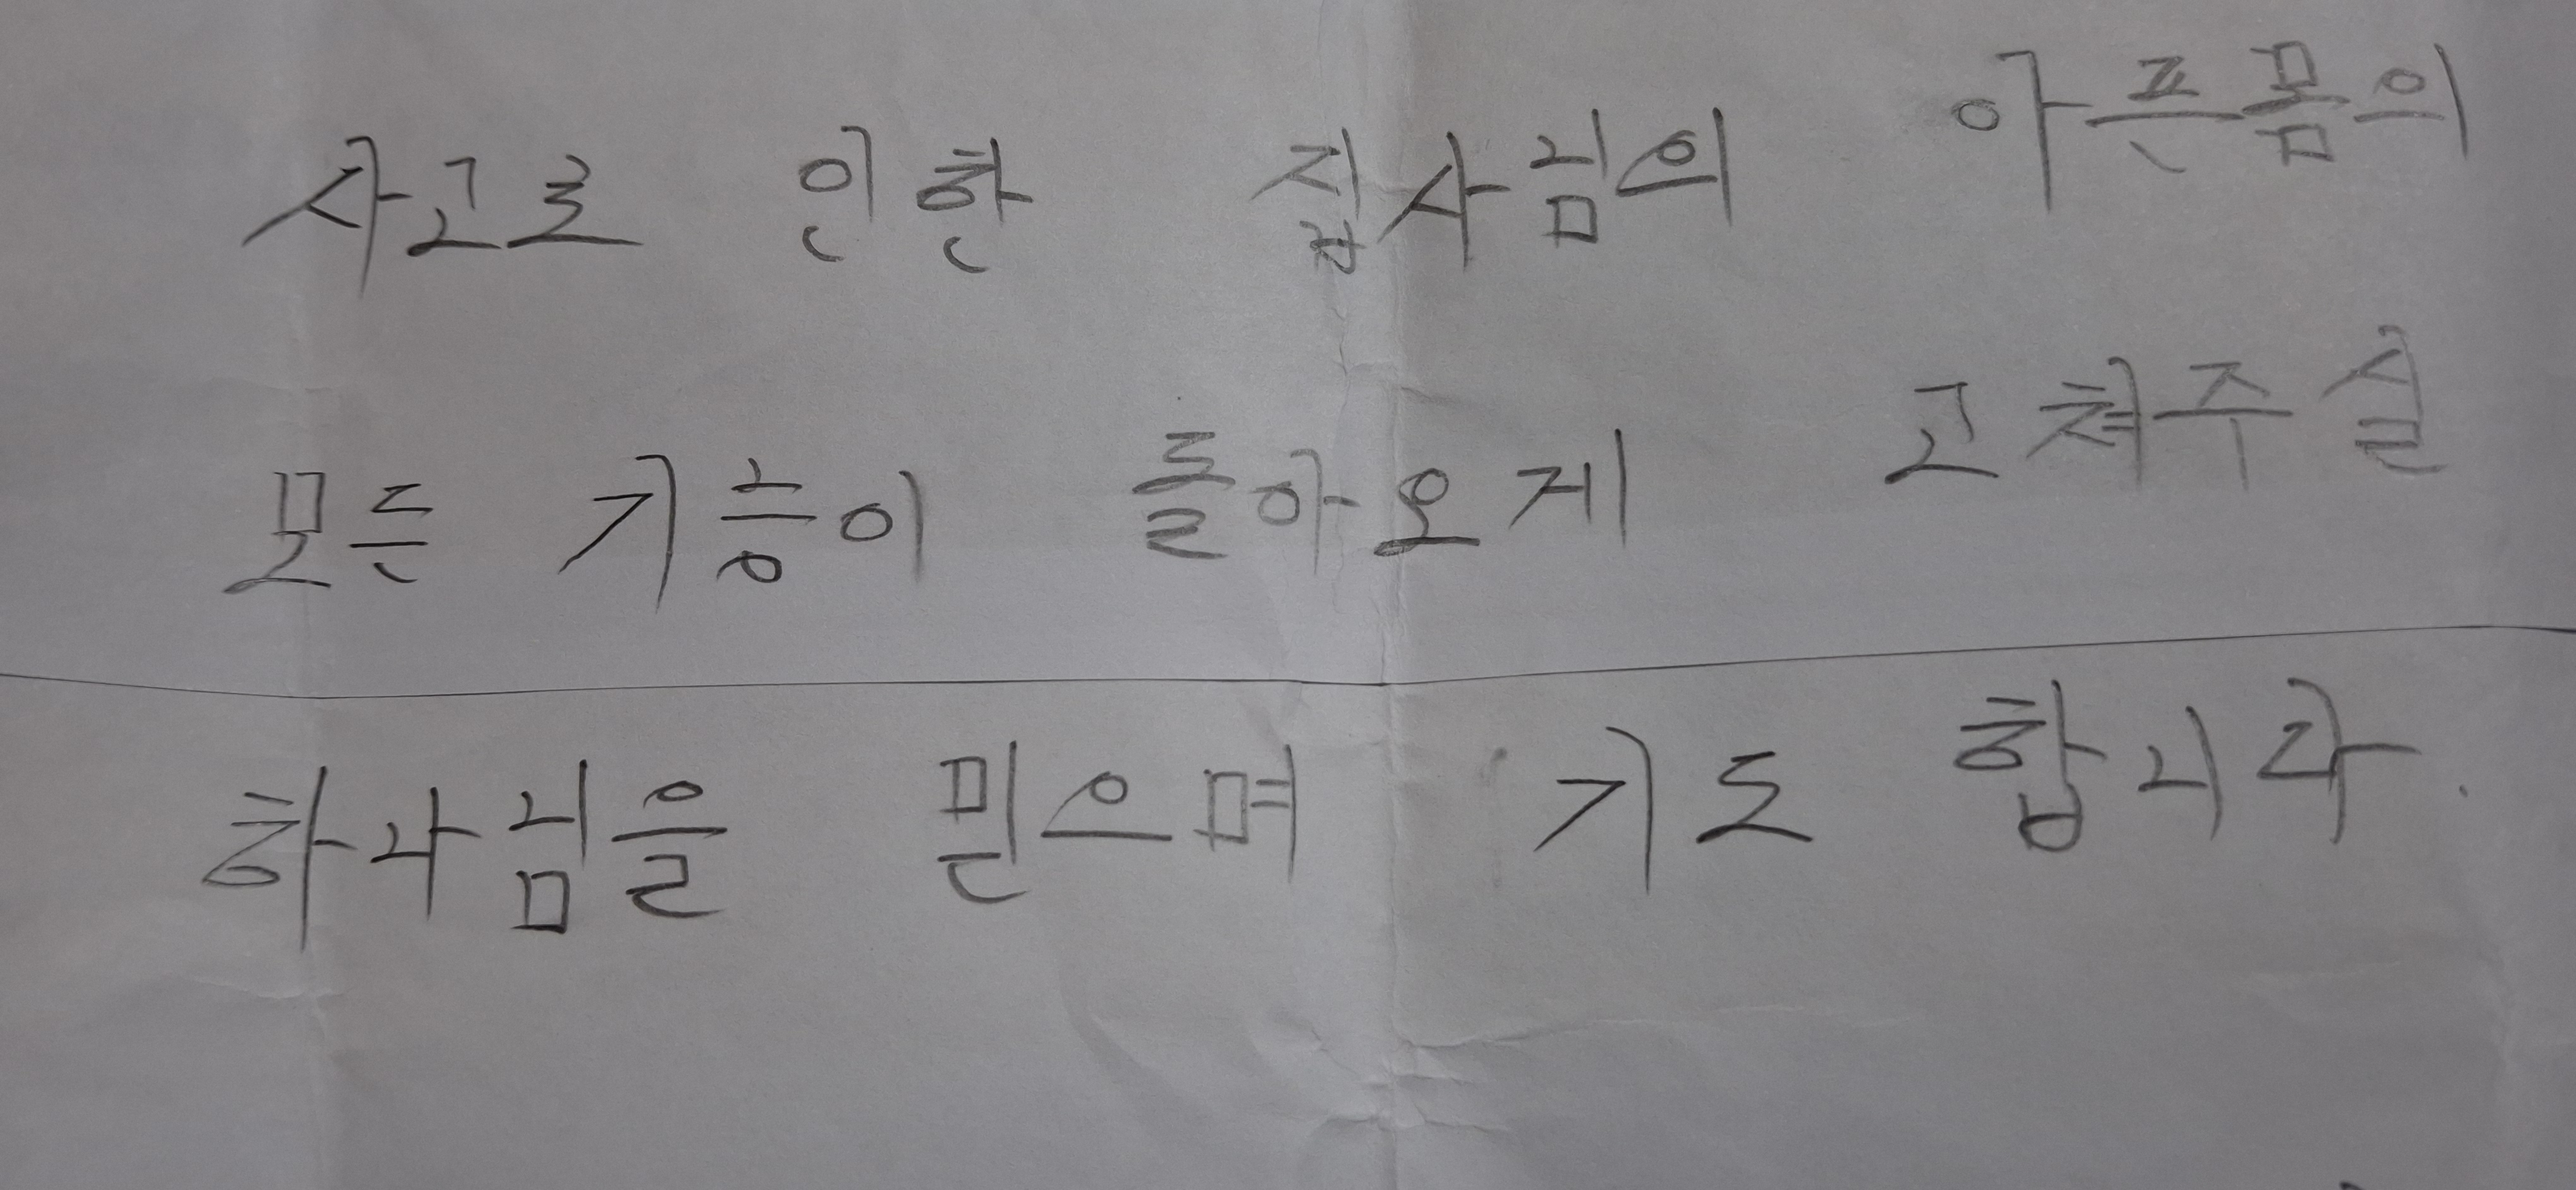 사고로 인한 집사님의 아픈몸의
모든 기능이 돌아오게 고쳐주실
하나님을 믿으며 기도 합니다.